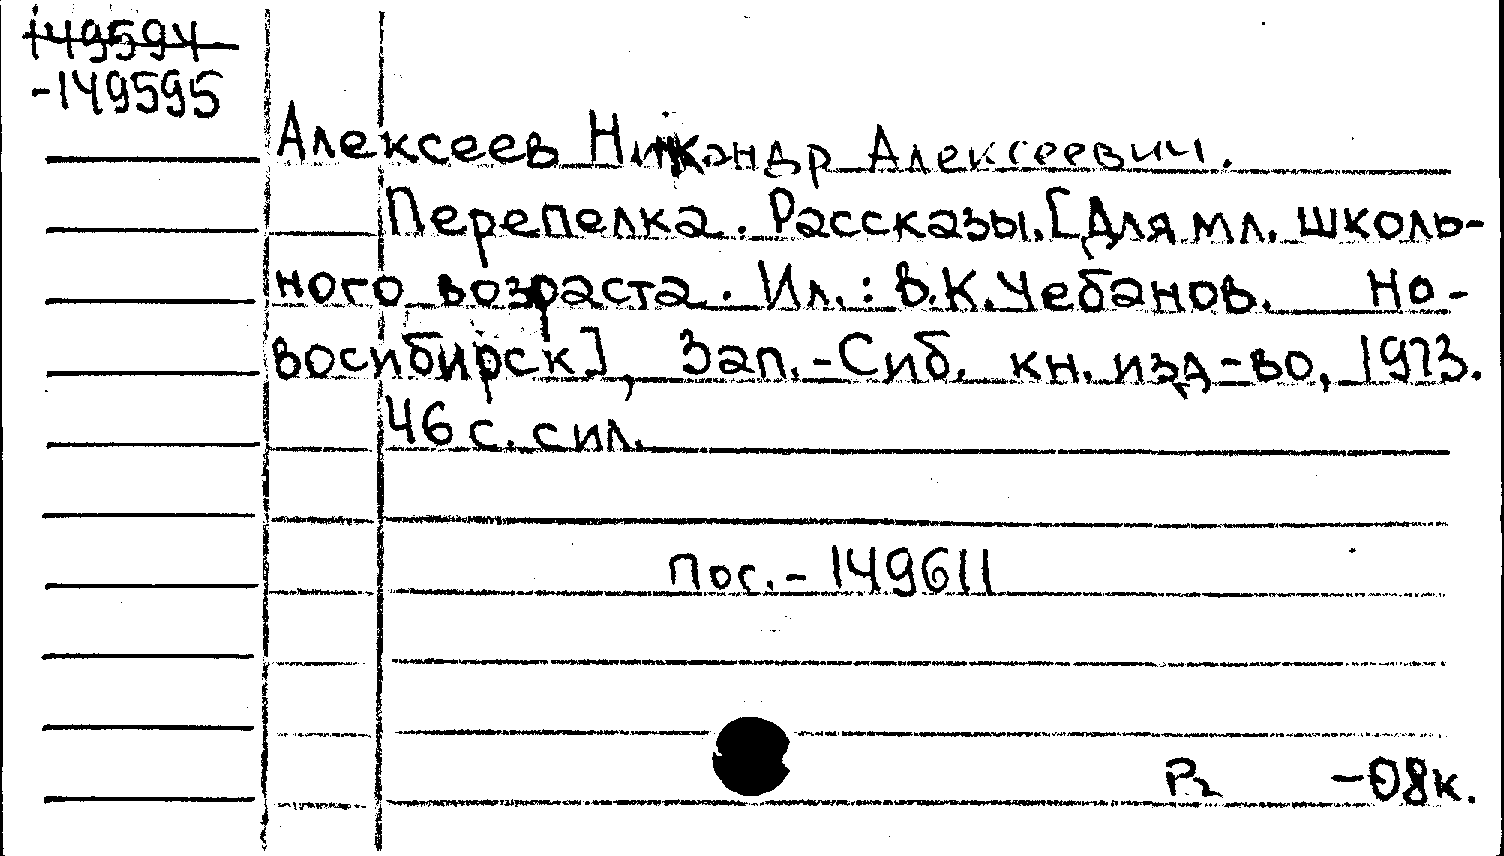 149594
-149595
Алексеев Никандр Алексеевич.
Перепелка. Рассказы. [Для мл. школь-
ного возраста. Ил.: В.К.Чебанов. Но-
восибирск], Зап.-Сиб. кн. изд-во, 1973.
46 с. с ил.
Пос.- 149611
Р2 -08к.